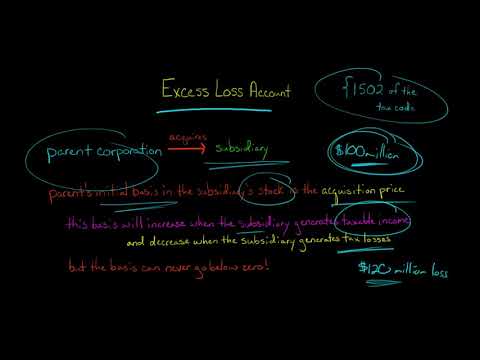 Excess Loss Account
§1502 of the
tax code
parent corporation
acquires
subsidiary
$100 million
parent's initial basis in the subsidiary's stock is the acquisition price
this basis will increase when the subsidiary generates taxable income
and decrease when the subsidiary generates tax losses
but the basis can never go below zero!
$120 million loss